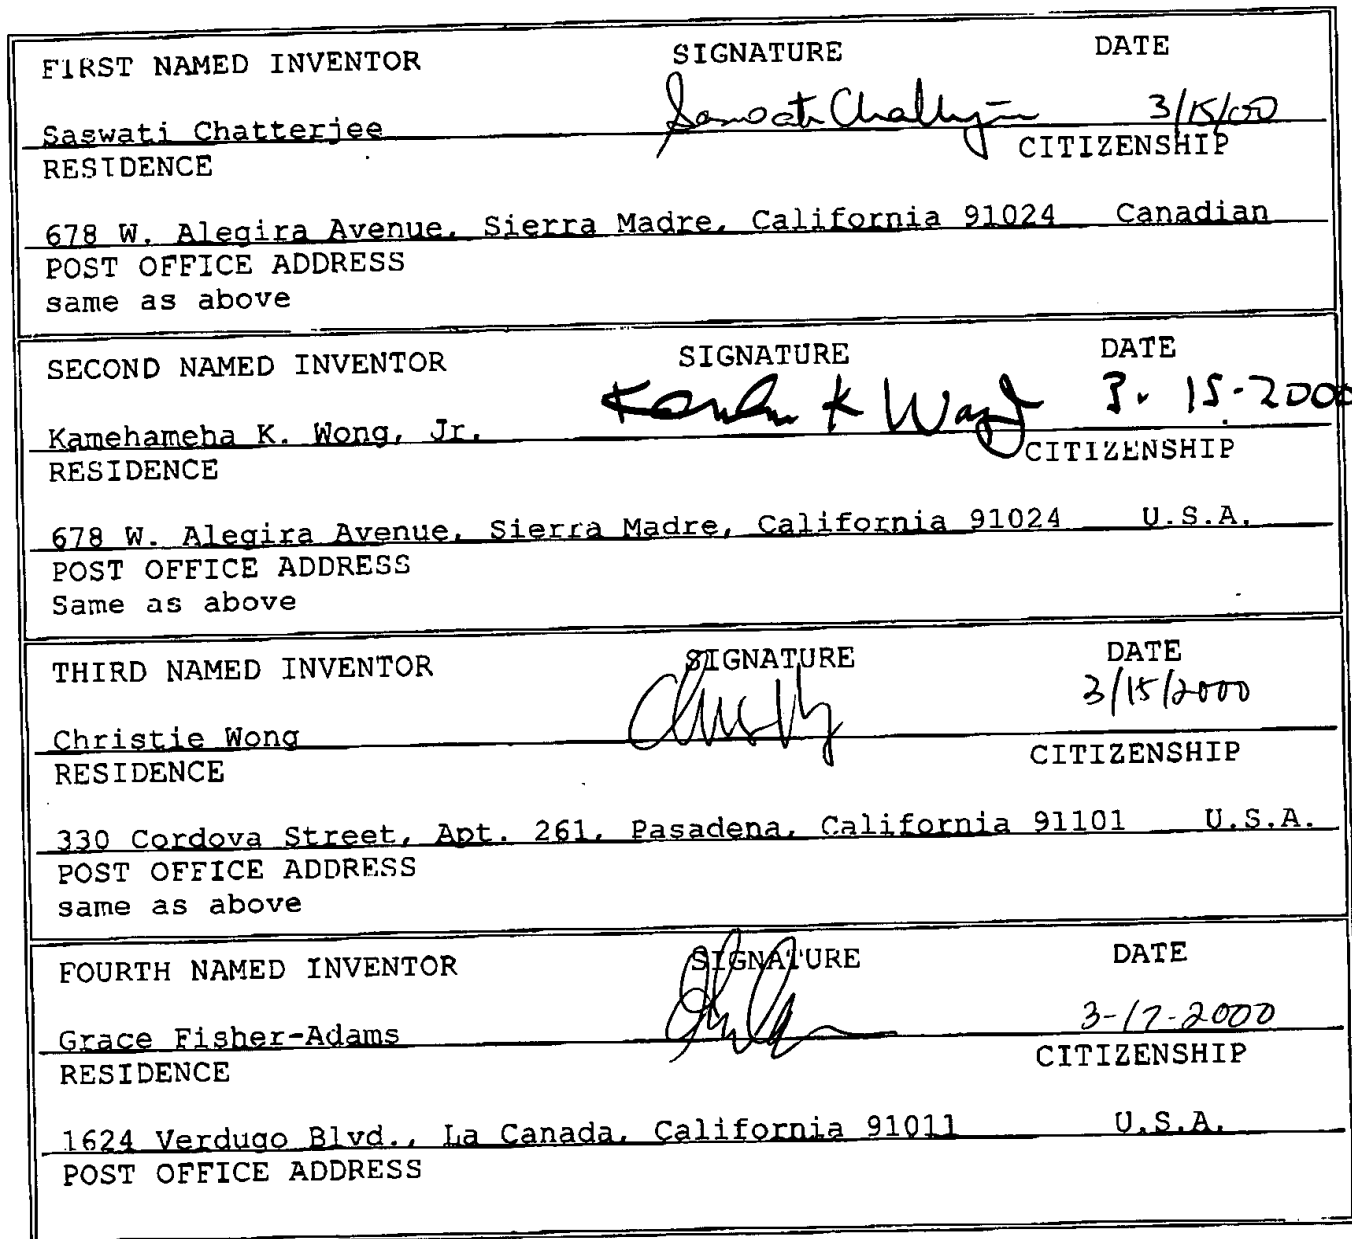 FIRST NAMED INVENTOR SIGNATURE DATE
Saswati Chatterjee 3/15/00
RESIDENCE CITIZENSHIP
678 W. Alegira Avenue, Sierra Madre, California 91024 Canadian
POST OFFICE ADDRESS
same as above
SECOND NAMED INVENTOR SIGNATURE DATE
Kamehameha K. Wong, Jr. K Wong 3. 15-2000
RESIDENCE CITIZENSHIP
678 W. Alegira Avenue, Sierra Madre, California 91024 U.S.A.
POST OFFICE ADDRESS
Same as above
THIRD NAMED INVENTOR SIGNATURE DATE
Christie Wong 3/15/2000
RESIDENCE CITIZENSHIP
330 Cordova Street, Apt. 261, Pasadena, California 91101 U.S.A.
POST OFFICE ADDRESS
same as above
FOURTH NAMED INVENTOR SIGNATURE DATE
Grace Fisher-Adams 3-17-2000
RESIDENCE CITIZENSHIP
1624 Verdugo Blvd., La Canada, California 91011 U.S.A.
POST OFFICE ADDRESS